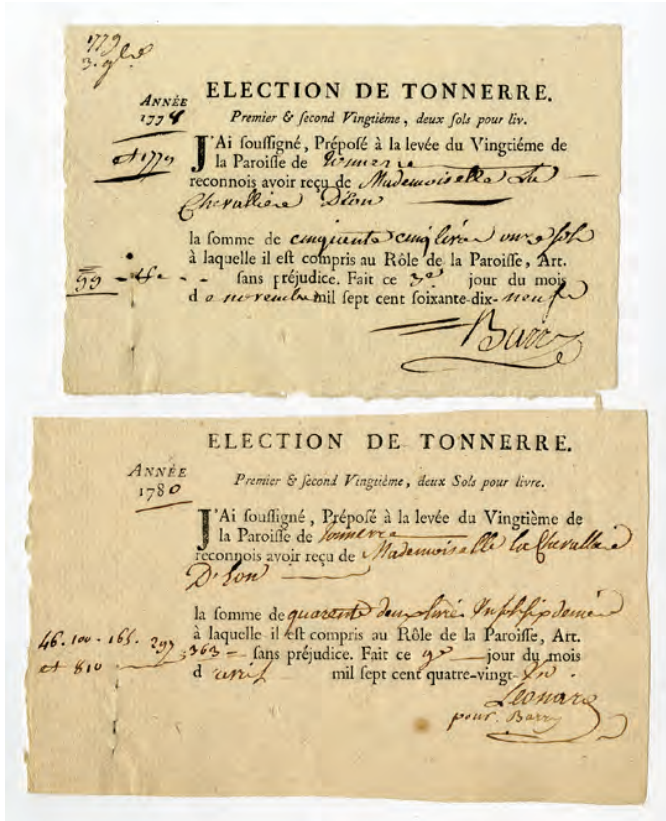 1779
3. 9bre
ELECTION DE TONNERRE.
ANNÉE
1778
Premier & ſecond Vingtiéme, deux ſols pour liv.
et 1779
J'Ai ſouſſigné, Prépoſé à la levée du Vingtiéme de
la Paroiſſe de Tonnerre
reconnois avoir reçu de Mademoiselle La
Chevalliere D'Eon
la ſomme de cinquante cinq livres onze ſols
à laquelle il eſt compris au Rôle de la Paroiſſe, Art.
ſans préjudice. Fait ce 3e jour du mois
de novembre mil ſept cent ſoixante-dix-neuf
Barry
ELECTION DE TONNERRE.
ANNÉE
1780
Premier & ſecond Vingtiéme, deux Sols pour livre.
J'Ai ſouſſigné, Prépoſé à la levée du Vingtiéme de
la Paroiſſe de Tonnerre
reconnois avoir reçu de Mademoiselle la Chevalliere
D'Eon
la ſomme de quarente deux livres
à laquelle il eſt compris au Rôle de la Paroiſſe, Art.
46. 100. 165. 297
363 ſans préjudice. Fait ce 9e jour du mois
et 810
d avril mil ſept cent quatre-vingt-un
Leonard
pour Barry